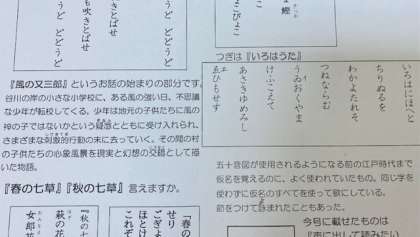 ょこ
ぴょこ
鰹
かつお
どどうど
うど どどうど
も吹きとばせ
きとばせ
うど どどうど
『風の又三郎』というお話の始まりの部分です。
谷川の岸の小さな小学校に、ある風の強い日、不思議
な少年が転校してくる。少年は地元の子供たちに風の
神の子ではないかという疑念とともに受け入れられ、
さまざまな刺激的行動の末に去っていく、その間の村
の子供たちの心象風景を現実と幻想の交錯として描
いた物語。
つぎは『いろはうた』
いろはにほへと
ちりぬるを
わかよたれそ
つねならむ
うゐのおくやま
けふこえて
あさきゆめみし
ゑひもせす
五十音図が使用されるようになる前の江戸時代まで
仮名を覚えるのに、よく使われていたもの。同じ字を
使わずに仮名のすべてを使って歌にしている。
節をつけて詠まれたこともあった。
『春の七草』『秋の七草』言えますか。
『春の
せり
ごぎょ
ほとけ
これぞ
『秋の
萩の花
女郎花
今号に載せたものは
『声に出して読みたい